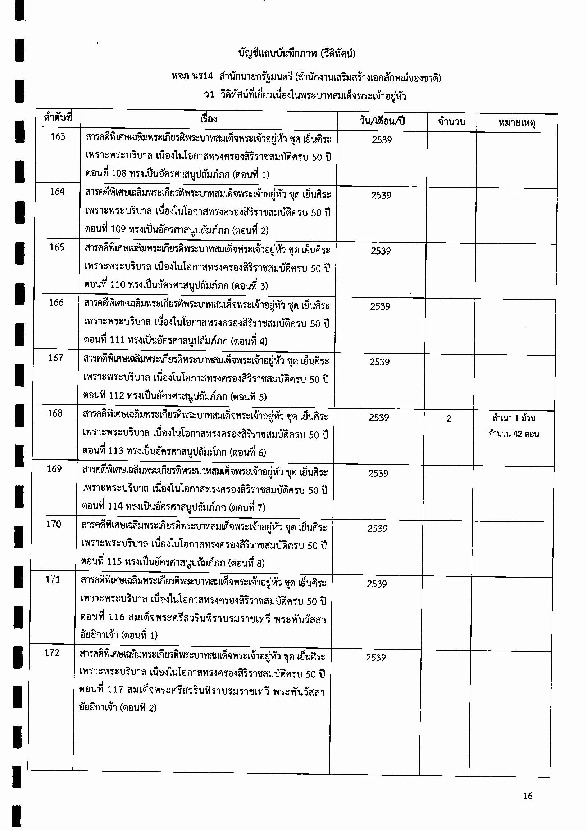 บัญชีแถบบันทึกภาพ (วีดิทัศน์)
หจภ นร14 สำนักนายกรัฐมนตรี (สำนักงานเสริมสร้างเอกลักษณ์ของชาติ)
ว1 วีดิทัศน์ที่เกี่ยวเนื่องในพระบาทสมเด็จพระเจ้าอยู่หัว
ลำดับที่ เรื่อง วัน/เดือน/ปี จำนวน หมายเหตุ
163 สารคดีพิเศษเฉลิมพระเกียรติพระบาทสมเด็จพระเจ้าอยู่หัว ชุด เย็นศิระ 2539
เพราะพระบริบาล เนื่องในโอกาสทรงครองสิริราชสมบัติครบ 50 ปี
ตอนที่ 108 ทรงเป็นอัครศาสนูปถัมภ์ภก (ตอนที่ 1)
164 สารคดีพิเศษเฉลิมพระเกียรติพระบาทสมเด็จพระเจ้าอยู่หัว ชุด เย็นศิระ 2539
เพราะพระบริบาล เนื่องในโอกาสทรงครองสิริราชสมบัติครบ 50 ปี
ตอนที่ 109 ทรงเป็นอัครศาสนูปถัมภ์ภก (ตอนที่ 2)
165 สารคดีพิเศษเฉลิมพระเกียรติพระบาทสมเด็จพระเจ้าอยู่หัว ชุด เย็นศิระ 2539
เพราะพระบริบาล เนื่องในโอกาสทรงครองสิริราชสมบัติครบ 50 ปี
ตอนที่ 110 ทรงเป็นอัครศาสนูปถัมภ์ภก (ตอนที่ 3)
166 สารคดีพิเศษเฉลิมพระเกียรติพระบาทสมเด็จพระเจ้าอยู่หัว ชุด เย็นศิระ 2539
เพราะพระบริบาล เนื่องในโอกาสทรงครองสิริราชสมบัติครบ 50 ปี
ตอนที่ 111 ทรงเป็นอัครศาสนูปถัมภ์ภก (ตอนที่ 4)
167 สารคดีพิเศษเฉลิมพระเกียรติพระบาทสมเด็จพระเจ้าอยู่หัว ชุด เย็นศิระ 2539
เพราะพระบริบาล เนื่องในโอกาสทรงครองสิริราชสมบัติครบ 50 ปี
ตอนที่ 112 ทรงเป็นอัครศาสนูปถัมภ์ภก (ตอนที่ 5)
168 สารคดีพิเศษเฉลิมพระเกียรติพระบาทสมเด็จพระเจ้าอยู่หัว ชุด เย็นศิระ 2539 2 สำเนา 1 ม้วน
เพราะพระบริบาล เนื่องในโอกาสทรงครองสิริราชสมบัติครบ 50 ปี จำนวน 42 ตอน
ตอนที่ 113 ทรงเป็นอัครศาสนูปถัมภ์ภก (ตอนที่ 6)
169 สารคดีพิเศษเฉลิมพระเกียรติพระบาทสมเด็จพระเจ้าอยู่หัว ชุด เย็นศิระ 2539
เพราะพระบริบาล เนื่องในโอกาสทรงครองสิริราชสมบัติครบ 50 ปี
ตอนที่ 114 ทรงเป็นอัครศาสนูปถัมภ์ภก (ตอนที่ 7)
170 สารคดีพิเศษเฉลิมพระเกียรติพระบาทสมเด็จพระเจ้าอยู่หัว ชุด เย็นศิระ 2539
เพราะพระบริบาล เนื่องในโอกาสทรงครองสิริราชสมบัติครบ 50 ปี
ตอนที่ 115 ทรงเป็นอัครศาสนูปถัมภ์ภก (ตอนที่ 8)
171 สารคดีพิเศษเฉลิมพระเกียรติพระบาทสมเด็จพระเจ้าอยู่หัว ชุด เย็นศิระ 2539
เพราะพระบริบาล เนื่องในโอกาสทรงครองสิริราชสมบัติครบ 50 ปี
ตอนที่ 116 สมเด็จพระศรีสวรินทิราบรมราชเทวี พระพันวัสสา
อัยยิกาเจ้า (ตอนที่ 1)
172 สารคดีพิเศษเฉลิมพระเกียรติพระบาทสมเด็จพระเจ้าอยู่หัว ชุด เย็นศิระ 2539
เพราะพระบริบาล เนื่องในโอกาสทรงครองสิริราชสมบัติครบ 50 ปี
ตอนที่ 117 สมเด็จพระศรีสวรินทิราบรมราชเทวี พระพันวัสสา
อัยยิกาเจ้า (ตอนที่ 2)
16